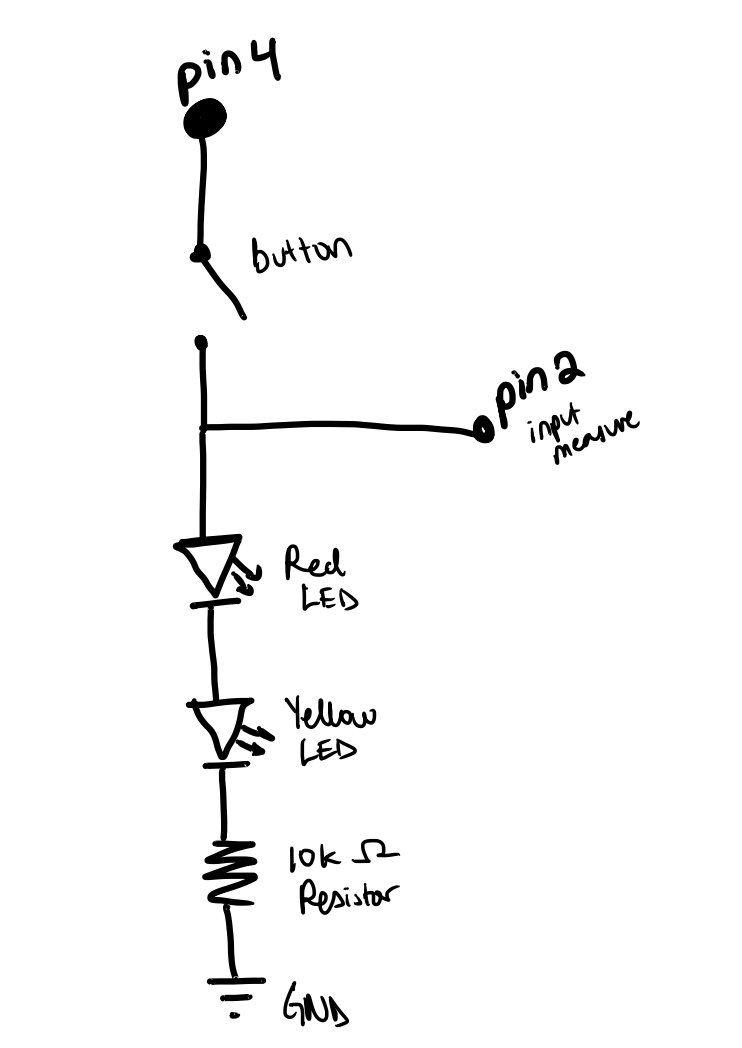 pin 4
button
pin 2
input
measure
Red
LED
Yellow
LED
10k Ω
Resistor
GND